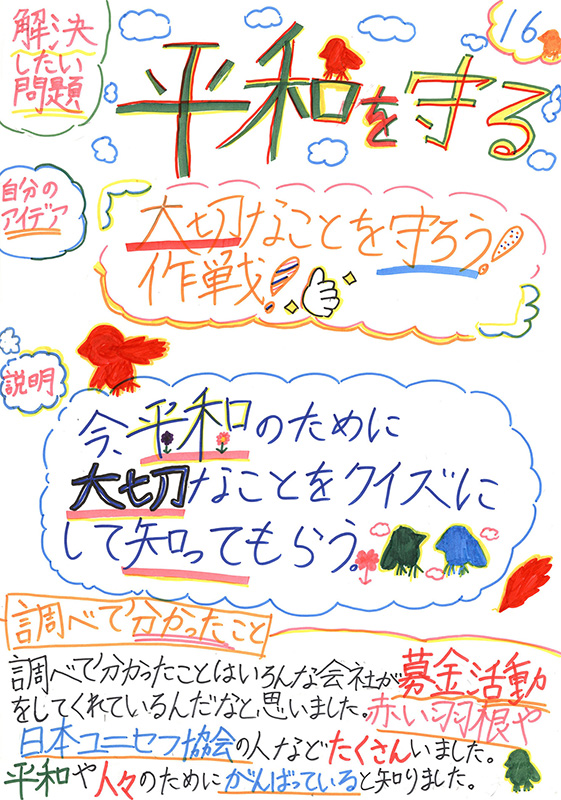 解決
したい
問題
平和を守る
16
自分の
アイデア
大切なことを守ろう!
作戦!
説明
今、平和のために
大切なことをクイズに
して知ってもらう。
調べて分かったこと
調べて分かったことはいろんな会社が募金活動
をしてくれているんだなと思いました。赤い羽根や
日本ユニセフ協会の人などたくさんいました。
平和や人々のためにがんばっていると知りました。